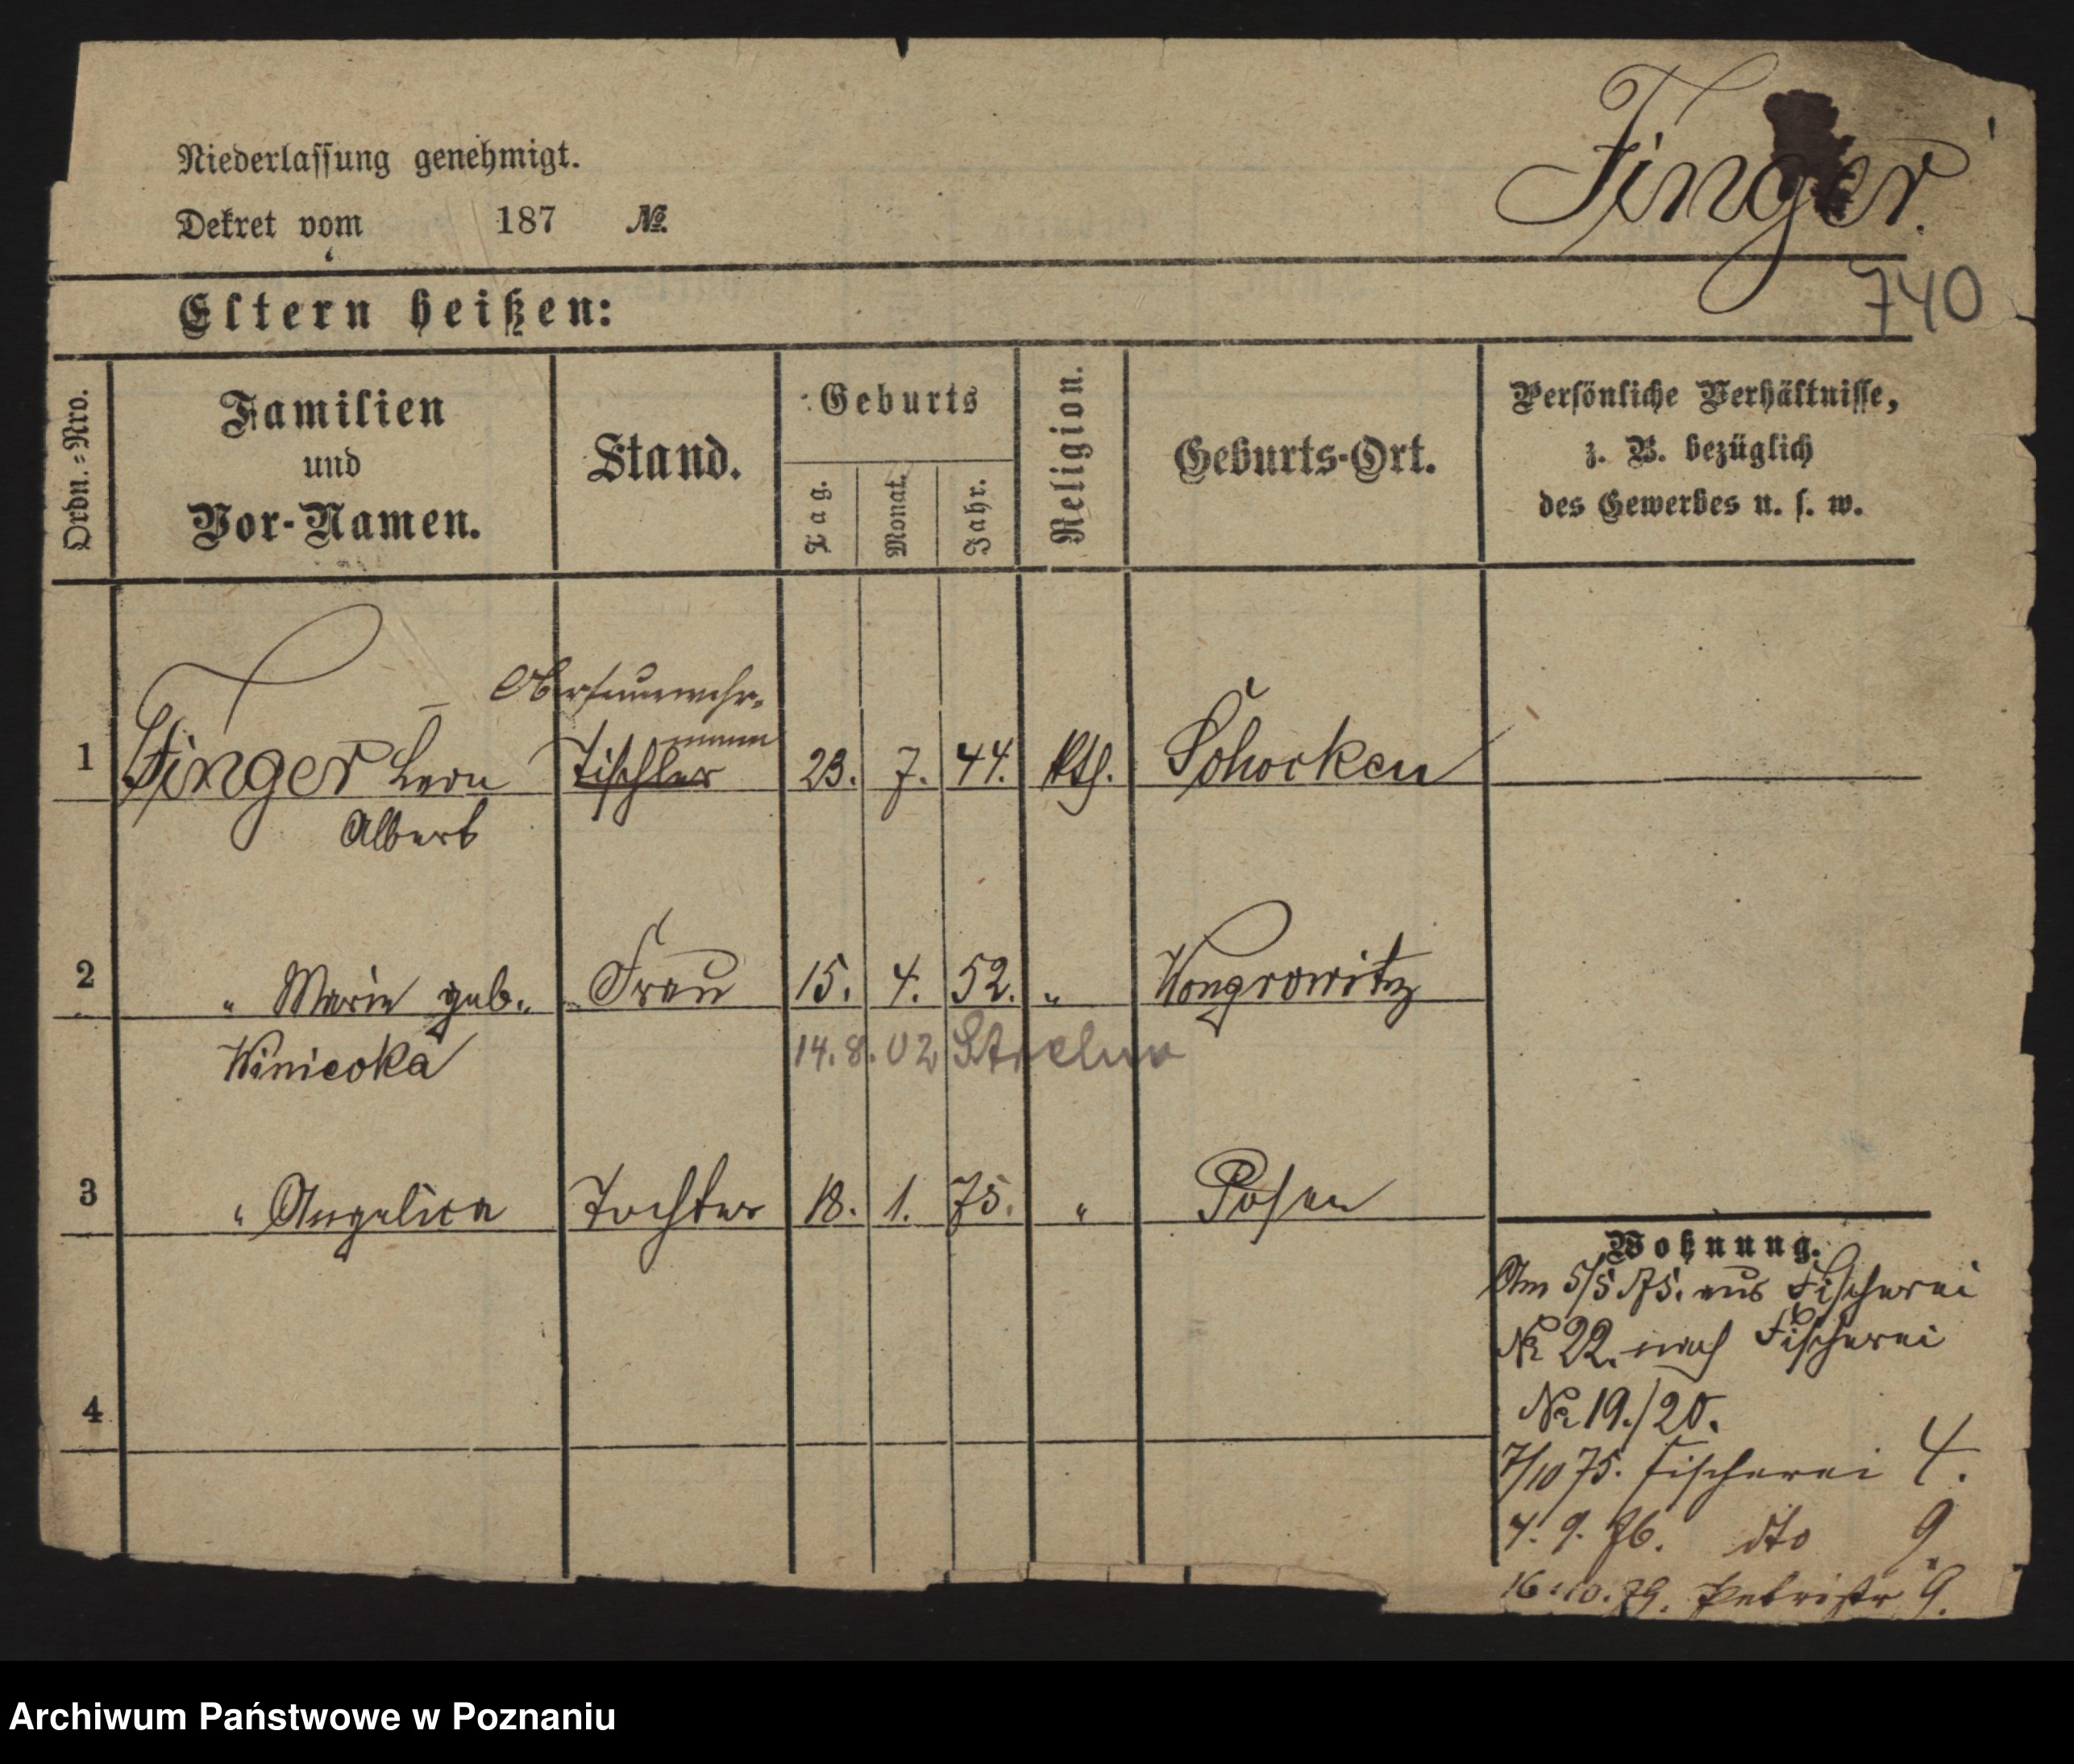 Finger.
Niederlassung genehmigt.
Dekret vom 187 №
740
Eltern heißen:
Ordn.=Nro.
Familien
und
Vor-Namen.
Stand.
Geburts
Tag.
Monat.
Jahr.
Religion.
Geburts-Ort.
Persönliche Verhältnisse,
z. B. bezüglich
des Gewerbes u. s. w.
Oberfeuerwehr-
mann
1 Finger Leon Tischler 23. 7. 44. kth. Schocken
Albert
2 " Marie geb. Frau 15. 4. 52. " Wongrowitz
14. 8. 02
3 " Angelica Tochter 18. 1. 75. " Posen
4
Wohnung.
Am 5/5 75. aus Fischerei
№ 22. nach Fischerei
№ 19./20.
7/10 75. Fischerei 4.
4. 9. 76. dto 9.
16.10.79. Petristr 9.
Archiwum Państwowe w Poznaniu